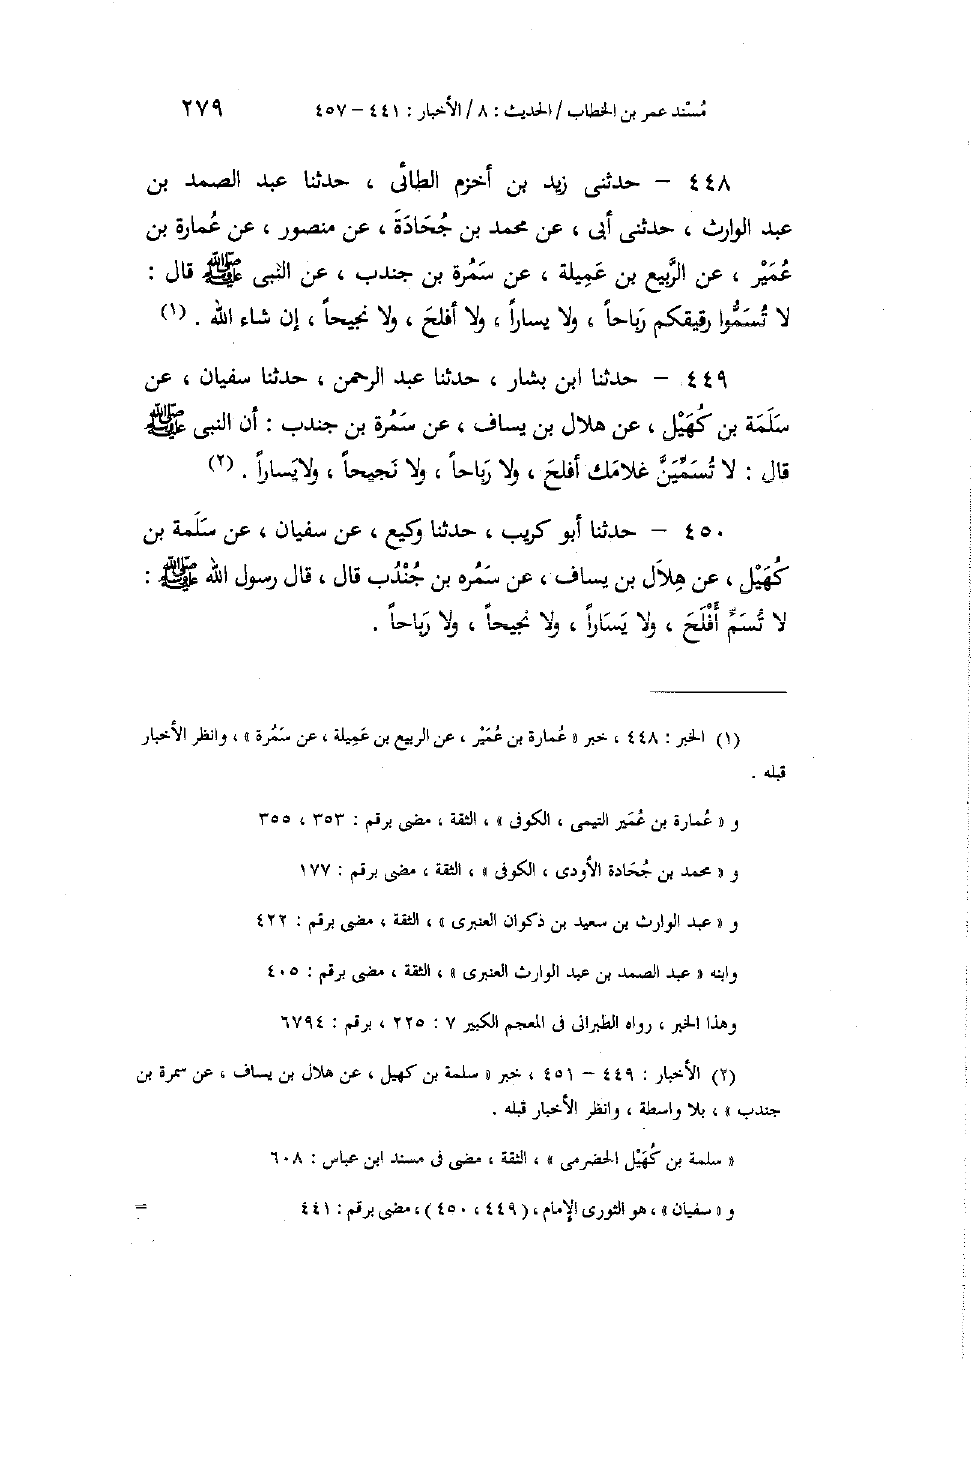 مُسْند عمر بن الخطاب / الحديث : ٨ / الأخبار : ٤٤١ – ٤٥٧ ٢٧٩
٤٤٨ – حدثنى زيد بن أخزم الطائى ، حدثنا عبد الصمد بن
عبد الوارث ، حدثنى أبى ، عن محمد بن جُحَادَةَ ، عن منصور ، عن عُمارة بن
عُمَيْر ، عن الرَّبيع بن عَمِيلة ، عن سَمُرة بن جندب ، عن النبى ﷺ قال :
لا تُسَمُّوا رقيقكم رَباحاً ، ولا يساراً ، ولا أفلحَ ، ولا نجيحاً ، إن شاء الله . (١)
٤٤٩ – حدثنا ابن بشار ، حدثنا عبد الرحمن ، حدثنا سفيان ، عن
سَلَمَة بن كُهَيْل ، عن هلال بن يساف ، عن سَمُرة بن جندب : أن النبى ﷺ
قال : لا تُسَمِّيَنَّ غلامَك أفلحَ ، ولا رَباحاً ، ولا نَجيحاً ، ولايَساراً . (٢)
٤٥٠ – حدثنا أبو كريب ، حدثنا وكيع ، عن سفيان ، عن سَلَمة بن
كُهَيْل ، عن هِلاَل بن يساف ، عن سَمُره بن جُنْدُب قال ، قال رسول الله ﷺ :
لا تُسَمِّ أَفْلَحَ ، ولا يَسَاراً ، ولا نجيحاً ، ولا رَباحاً .
(١) الخبر : ٤٤٨ ، خبر « عُمارة بن عُمَيْر ، عن الربيع بن عَمِيلة ، عن سَمُرة » ، وانظر الأخبار
قبله .
و « عُمارة بن عُمَير التيمى ، الكوفى » ، الثقة ، مضى برقم : ٣٥٣ ، ٣٥٥
و « محمد بن جُحَادة الأودى ، الكوفى » ، الثقة ، مضى برقم : ١٧٧
و « عبد الوارث بن سعيد بن ذكوان العنبرى » ، الثقة ، مضى برقم : ٤٢٢
وابنه « عبد الصمد بن عبد الوارث العنبرى » ، الثقة ، مضى برقم : ٤٠٥
وهذا الخبر ، رواه الطبرانى فى المعجم الكبير ٧ : ٢٢٥ ، برقم : ٦٧٩٤
(٢) الأخبار : ٤٤٩ – ٤٥١ ، خبر « سلمة بن كهيل ، عن هلال بن يساف ، عن سمرة بن
جندب » ، بلا واسطة ، وانظر الأخبار قبله .
« سلمة بن كُهَيْل الحضرمى » ، الثقة ، مضى فى مسند ابن عباس : ٦٠٨
و « سفيان » ، هو الثورى الإمام ، ( ٤٤٩ ، ٤٥٠ ) ، مضى برقم : ٤٤١ =